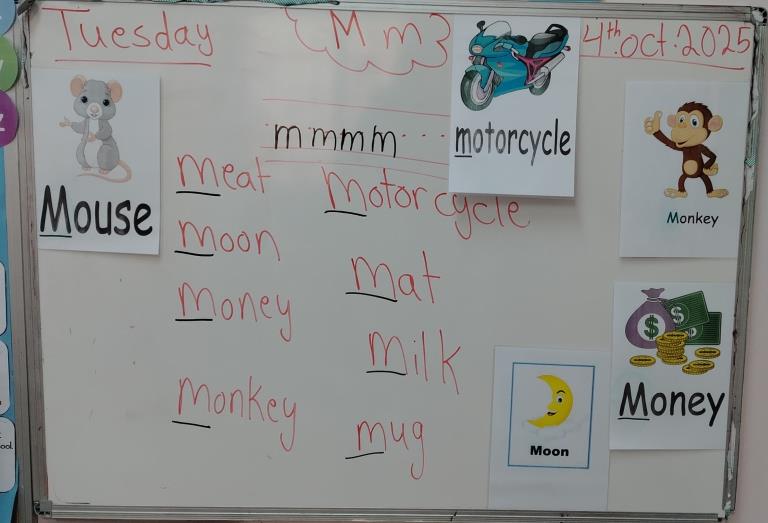 Tuesday
M m
4th.oct.2025
m m m m
motorcycle
Mouse
Monkey
meat
motor cycle
moon
mat
money
milk
monkey
mug
Money
Moon